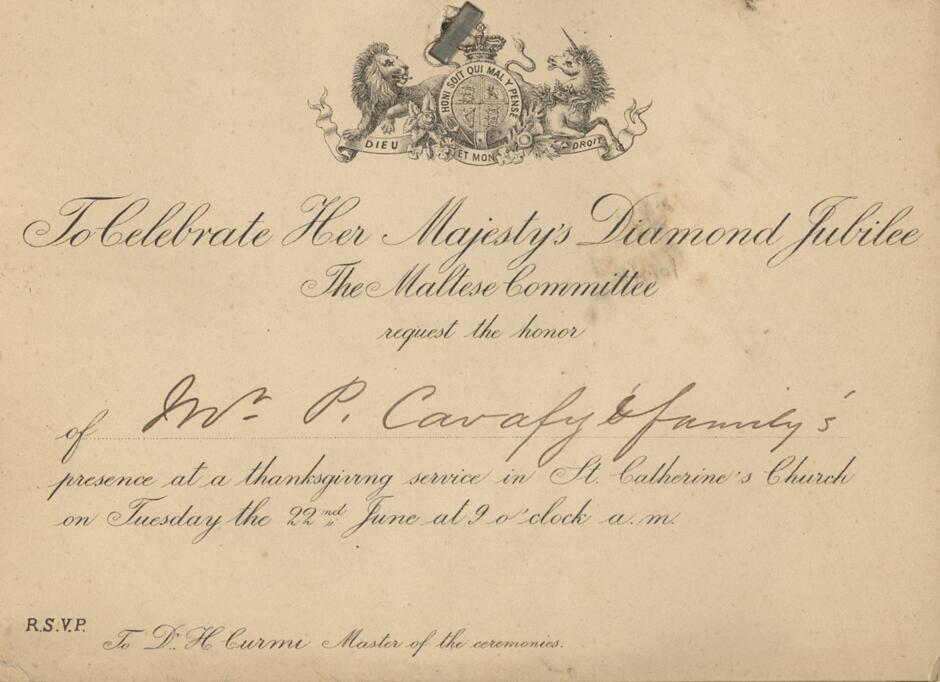 HONI SOIT QUI MAL Y PENSE
DIEU ET MON DROIT
To Celebrate Her Majesty's Diamond Jubilee
The Maltese Committee
request the honor
of Mr. P. Cavafy & family's
presence at a thanksgiving service in St. Catherine's Church
on Tuesday the 22nd June at 9 o'clock a.m.
R.S.V.P.
To Dr. H Curmi Master of the ceremonies.